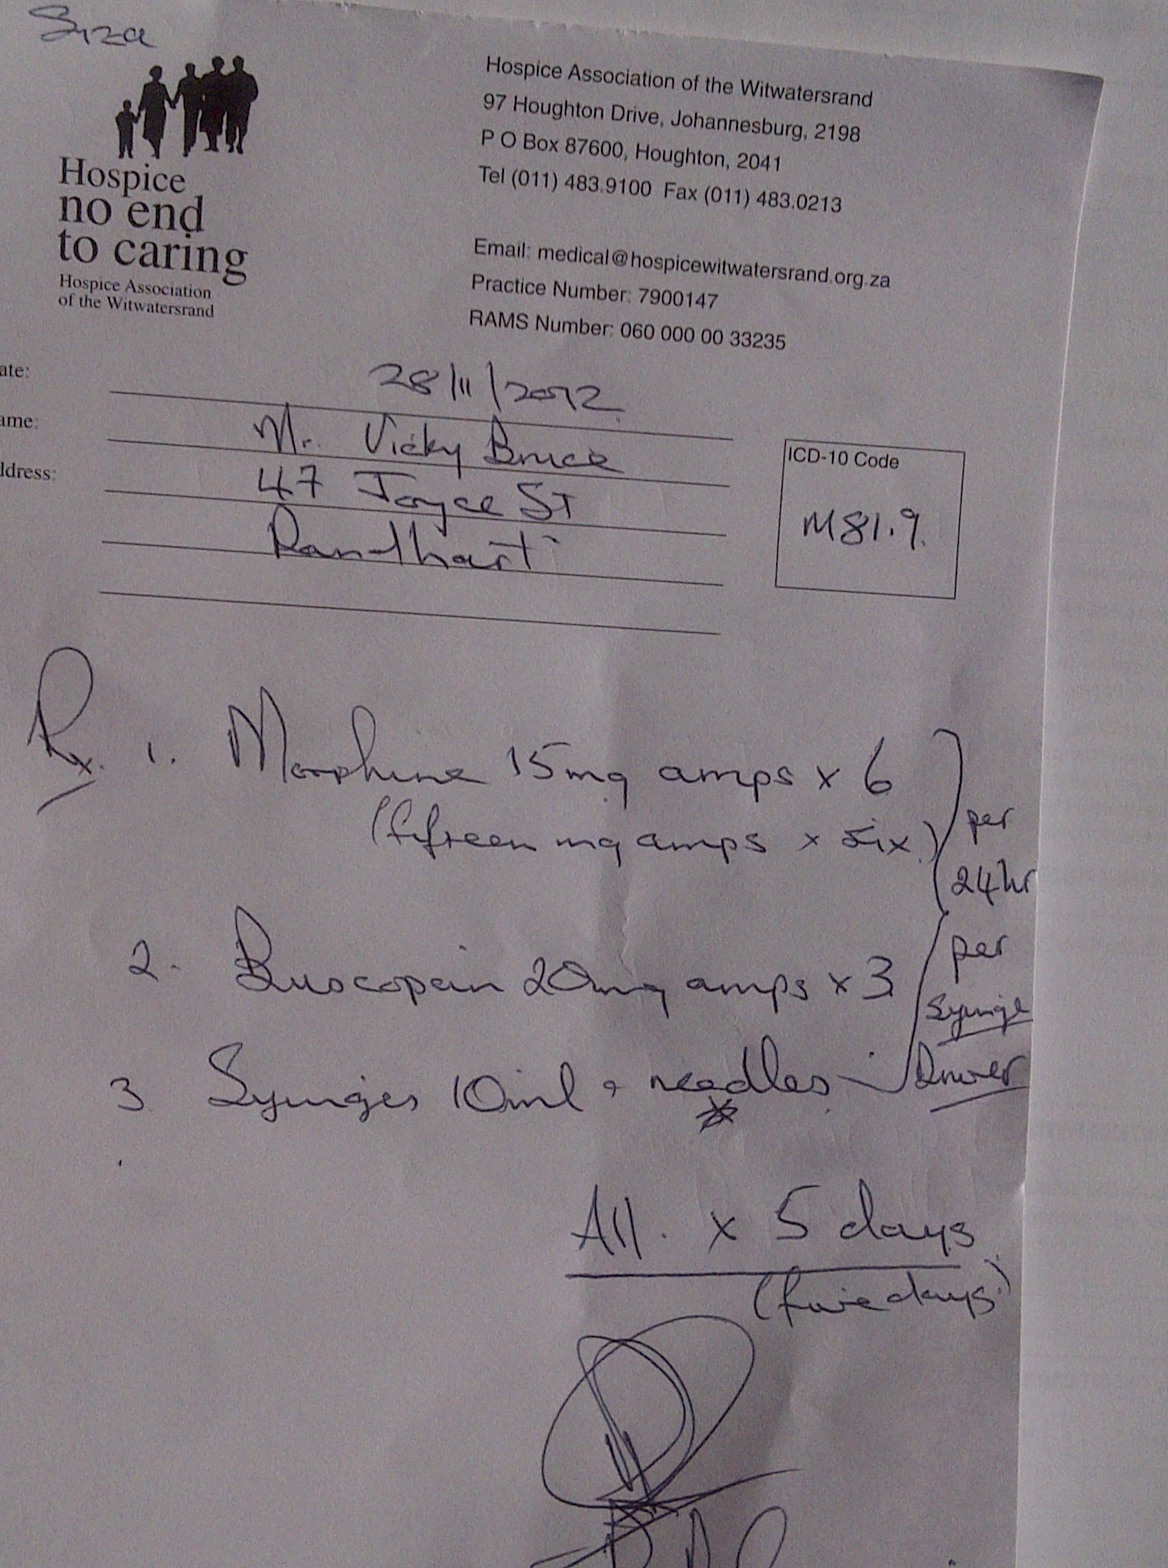 Siza
Hospice
no end
to caring
Hospice Association
of the Witwatersrand
Hospice Association of the Witwatersrand
97 Houghton Drive, Johannesburg, 2198
P O Box 87600, Houghton, 2041
Tel (011) 483.9100 Fax (011) 483.0213
Email: medical@hospicewitwatersrand.org.za
Practice Number: 7900147
RAMS Number: 060 000 00 33235
ate: 28/11/2012
ame: Mr. Vicky Bruce
ddress: 47 Joyce St
Randhart
ICD-10 Code
M81.9.
Rx. 1. Morphine 15mg amps x 6
(fifteen mg amps x six)
per
24hr
2. Buscopan 20mg amps x 3
per
syringe
Driver
3 Syringes 10ml + needles
All. x 5 days
(five days)